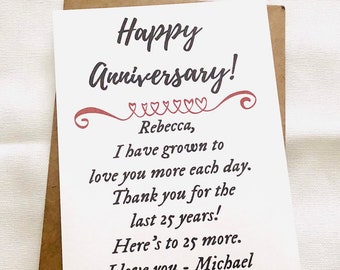 Happy
Anniversary!
Rebecca,
I have grown to
love you more each day.
Thank you for the
last 25 years!
Here's to 25 more.
I love you - Michael